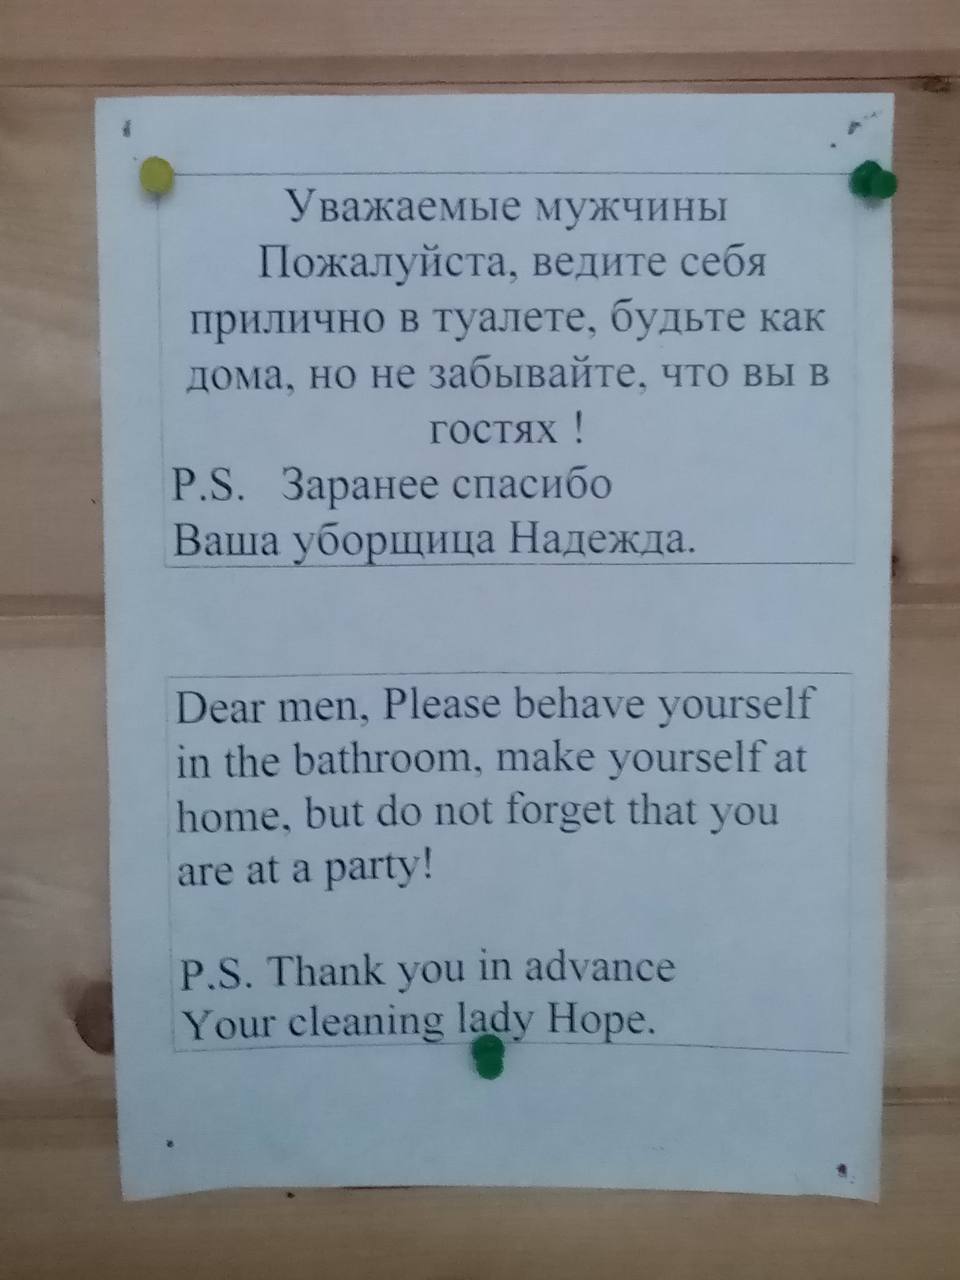 Уважаемые мужчины
Пожалуйста, ведите себя
прилично в туалете, будьте как
дома, но не забывайте, что вы в
гостях !
P.S. Заранее спасибо
Ваша уборщица Надежда.
Dear men, Please behave yourself
in the bathroom, make yourself at
home, but do not forget that you
are at a party!
P.S. Thank you in advance
Your cleaning lady Hope.